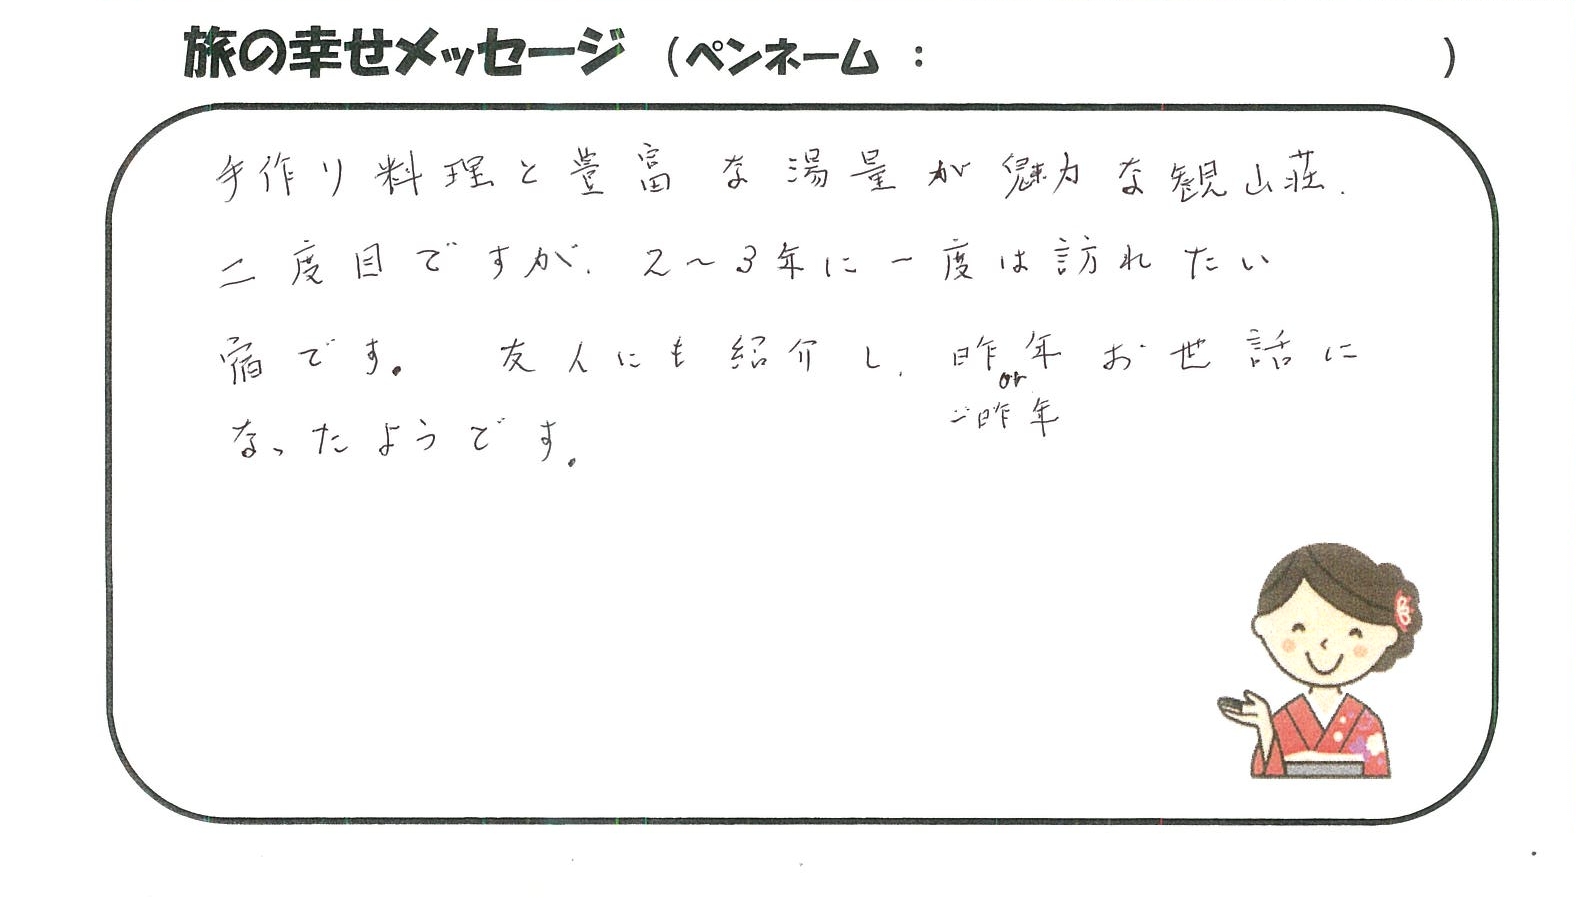 旅の幸せメッセージ （ペンネーム ： ）
手作り料理と豊富な湯量が魅力な観山荘.
二度目ですが、2～3年に一度は訪れたい
宿です。 友人にも紹介し、昨年お世話に
or
一昨年
なったようです。